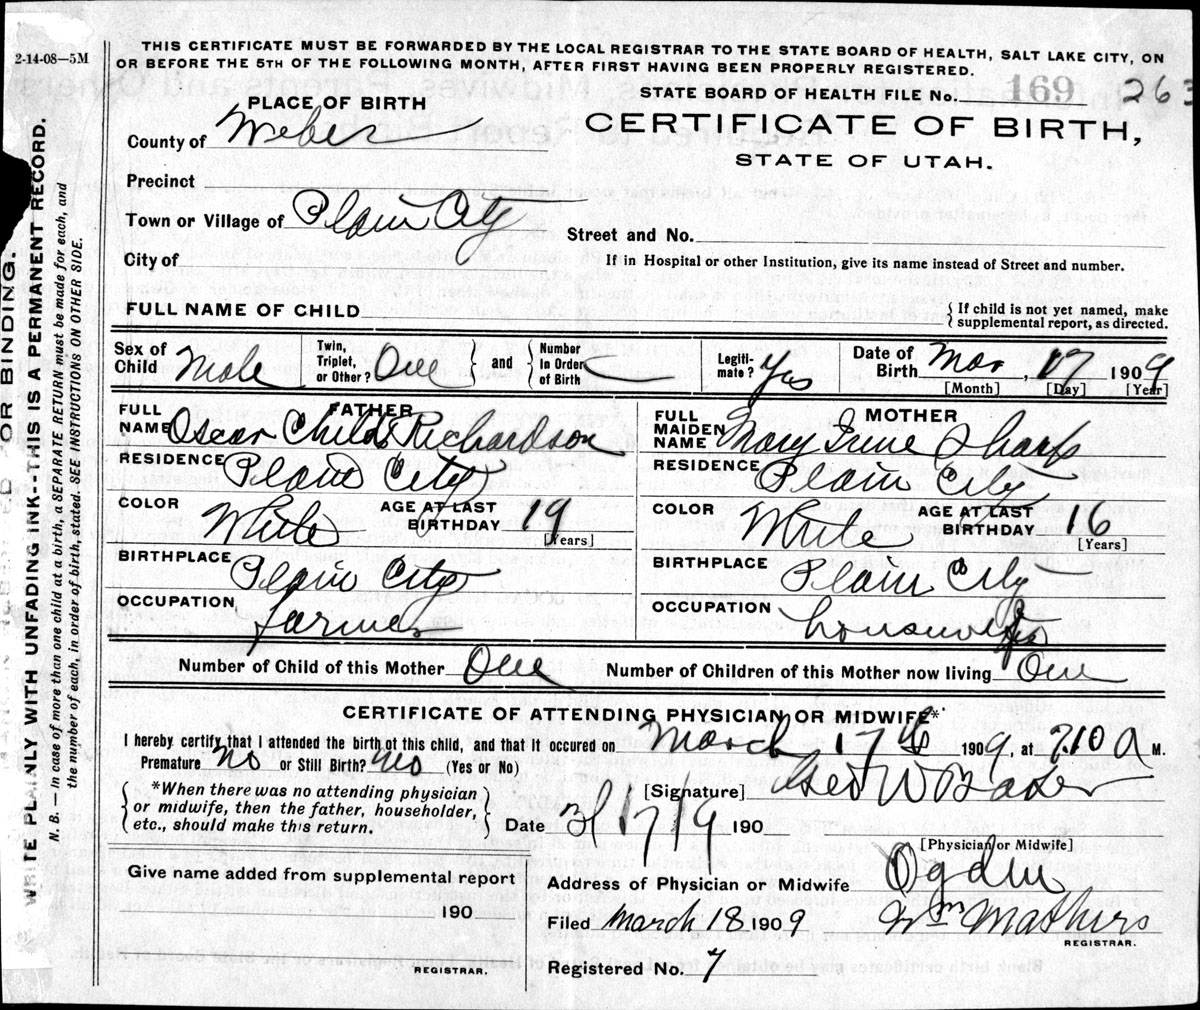 2-14-08—5M
THIS CERTIFICATE MUST BE FORWARDED BY THE LOCAL REGISTRAR TO THE STATE BOARD OF HEALTH, SALT LAKE CITY, ON
OR BEFORE THE 5TH OF THE FOLLOWING MONTH, AFTER FIRST HAVING BEEN PROPERLY REGISTERED.
STATE BOARD OF HEALTH FILE No. 169 263
PLACE OF BIRTH
CERTIFICATE OF BIRTH,
STATE OF UTAH.
County of Weber
Precinct
Town or Village of Plain City
Street and No.
City of
If in Hospital or other Institution, give its name instead of Street and number.
FULL NAME OF CHILD
{ If child is not yet named, make
supplemental report, as directed.
Sex of Child Male
Twin, Triplet, or Other? One } and { Number In Order of Birth
Legiti-mate? Yes
Date of Birth Mar 17 1909
[Month] [Day] [Year]
FATHER
FULL NAME Oscar Childs Richardson
RESIDENCE Plain City
COLOR White AGE AT LAST BIRTHDAY 19
[Years]
BIRTHPLACE Plain City
OCCUPATION farmer
MOTHER
FULL MAIDEN NAME Mary Irene Sharp
RESIDENCE Plain City
COLOR White AGE AT LAST BIRTHDAY 16
[Years]
BIRTHPLACE Plain City
OCCUPATION housewife
Number of Child of this Mother One Number of Children of this Mother now living One
CERTIFICATE OF ATTENDING PHYSICIAN OR MIDWIFE*
I hereby certify that I attended the birth of this child, and that it occured on March 17th 1909, at 7.10 A M.
Premature No or Still Birth? Yes (Yes or No)
{ *When there was no attending physician
or midwife, then the father, householder,
etc., should make this return. }
[Signature] Geo W Baker
Date 3/17/9 190
[Physician or Midwife]
Give name added from supplemental report
190
REGISTRAR.
Address of Physician or Midwife Ogden
Filed March 18 1909 Wm Mathers
REGISTRAR.
Registered No. 7
OR BINDING.
WRITE PLAINLY WITH UNFADING INK--THIS IS A PERMANENT RECORD.
N. B.— In case of more than one child at a birth, a SEPARATE RETURN must be made for each, and
the number of each, in order of birth, stated. SEE INSTRUCTIONS ON OTHER SIDE.